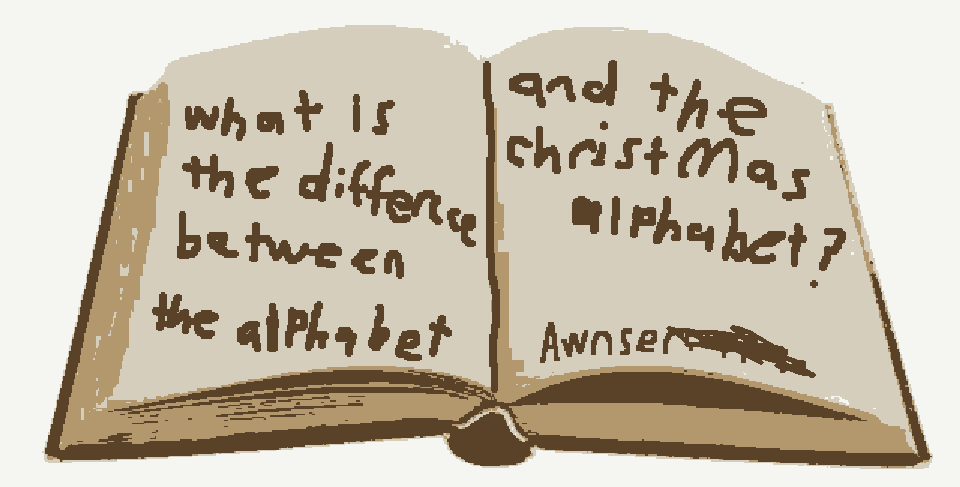 what is
the difference
between
the alphabet
and the
christmas
alphabet?
Awnser